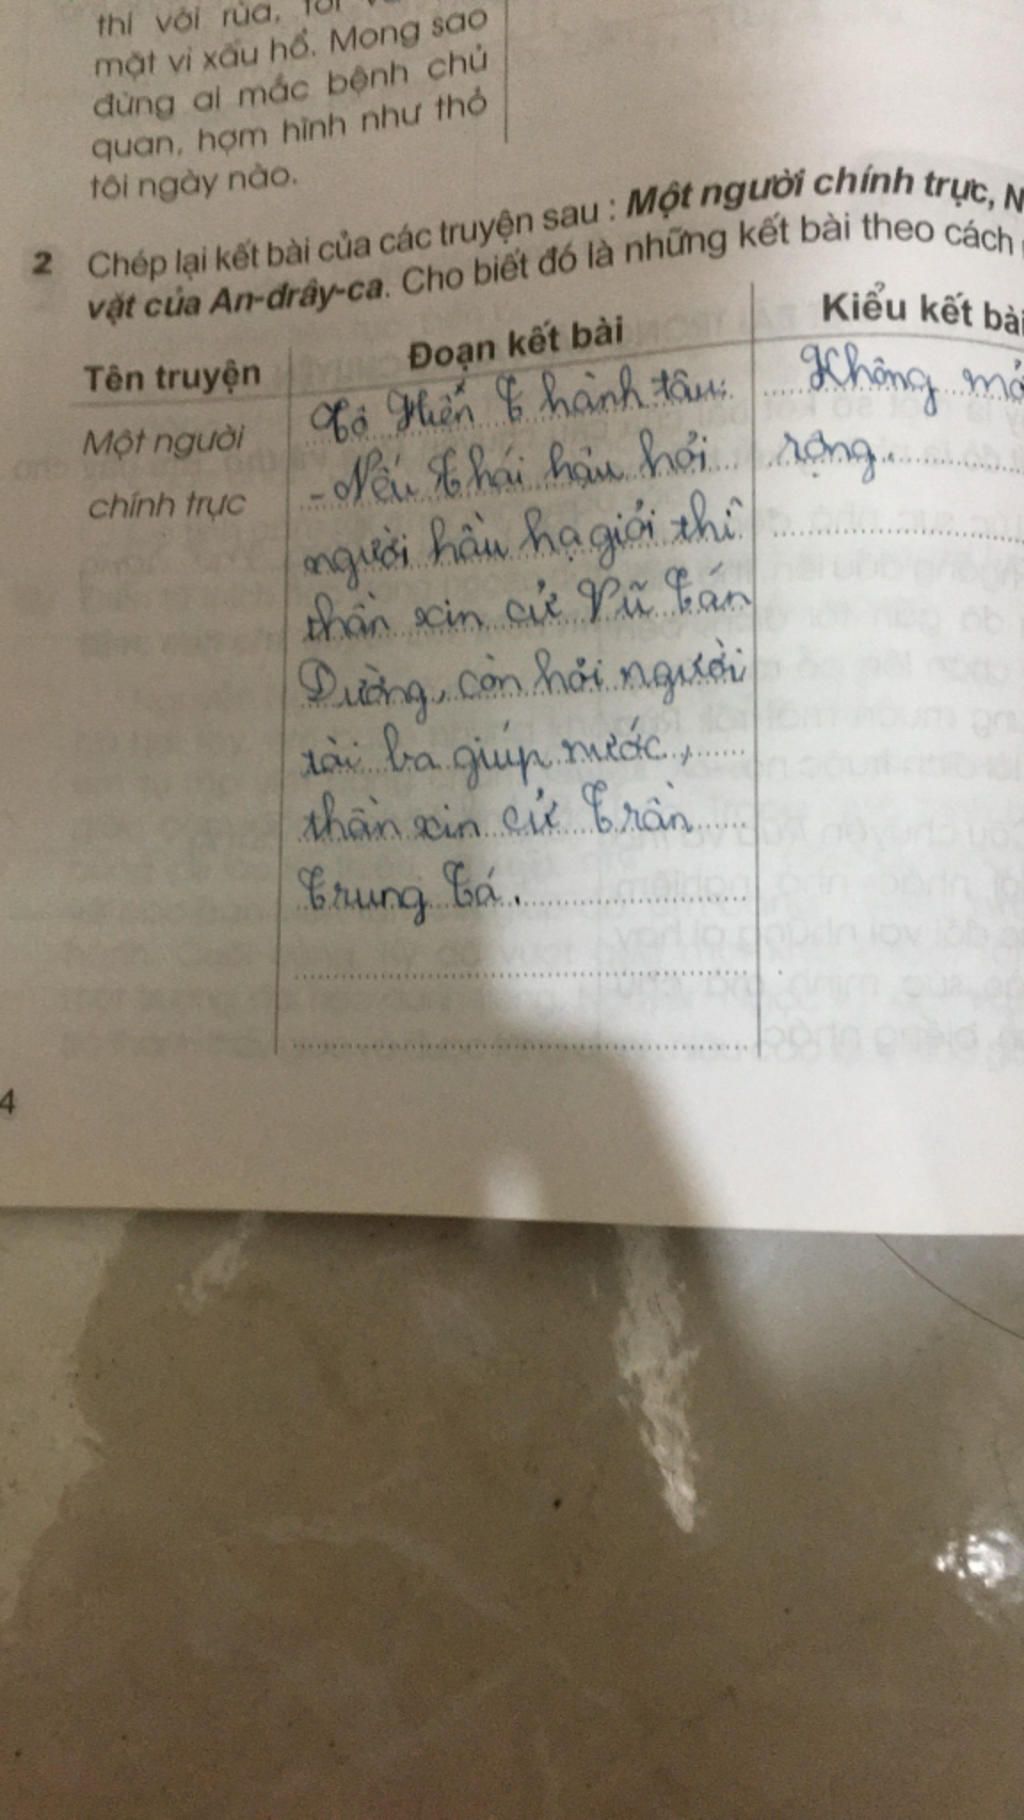 thi với rùa, tôi
mặt vì xấu hổ. Mong sao
đừng ai mắc bệnh chủ
quan, hợm hĩnh như thỏ
tôi ngày nào.
2 Chép lại kết bài của các truyện sau : Một người chính trực, N
vặt của An-đrây-ca. Cho biết đó là những kết bài theo cách
Tên truyện
Đoạn kết bài
Kiểu kết bài
Một người
chính trực
Tô Hiến Thành tâu:
- Nếu Thái hậu hỏi
người hầu hạ giỏi thì
thần xin cử Vũ Tán
Đường, còn hỏi người
tài ba giúp nước,
thần xin cử Trần
Trung Tá.
Không mở
rộng.
4